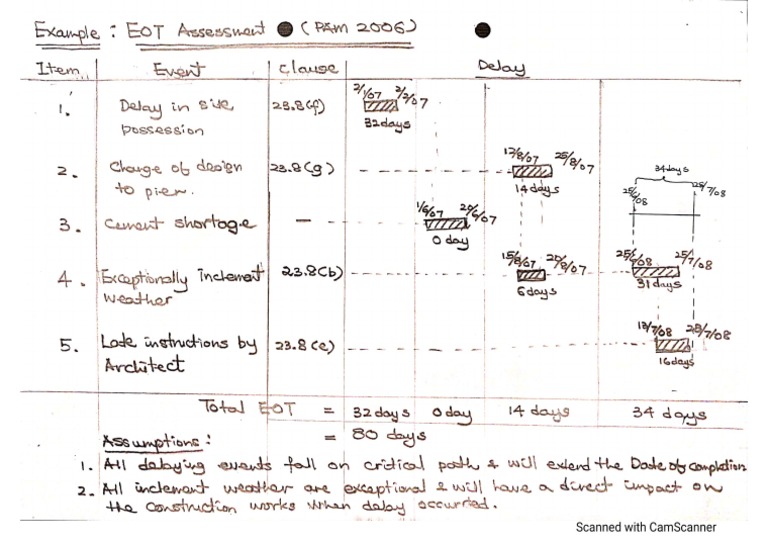 Example : EOT Assessment (PAM 2006)
Item Event Clause Delay
1. Delay in site possession 23.8(f) 2/1/07 2/2/07 32days
2. Change of design to pier. 23.8(g) 12/8/07 25/8/07 14 days
34days
25/6/08 28/7/08
3. Cement shortage — 1/6/07 20/6/07 0 day
4. Exceptionally inclement weather 23.8(b) 15/8/07 20/8/07 6days 25/6/08 25/7/08 31days
5. Late instructions by Architect 23.8(e) 13/7/08 28/7/08 16days
Total EOT = 32 days 0 day 14 days 34 days
= 80 days
Assumptions :
1. All delaying events fall on critical path & will extend the Date of Completion
2. All inclement weather are exceptional & will have a direct impact on
the construction works when delay occurred.
Scanned with CamScanner